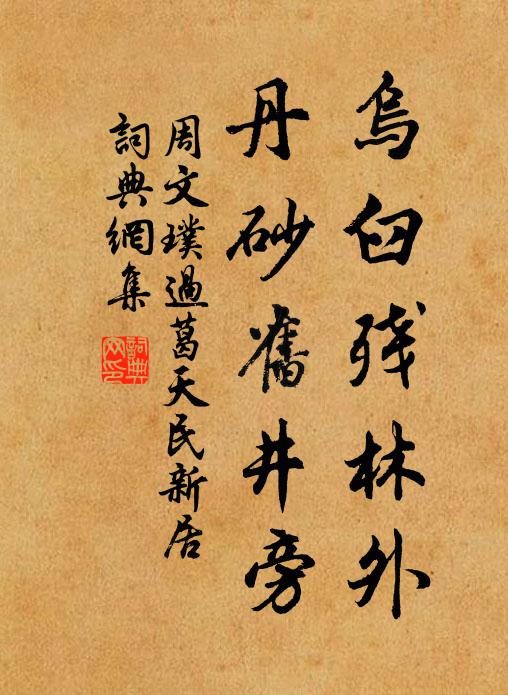 烏臼残林外
丹砂舊井旁
周文璞過葛天民新居
詞典網集
詞典
网印